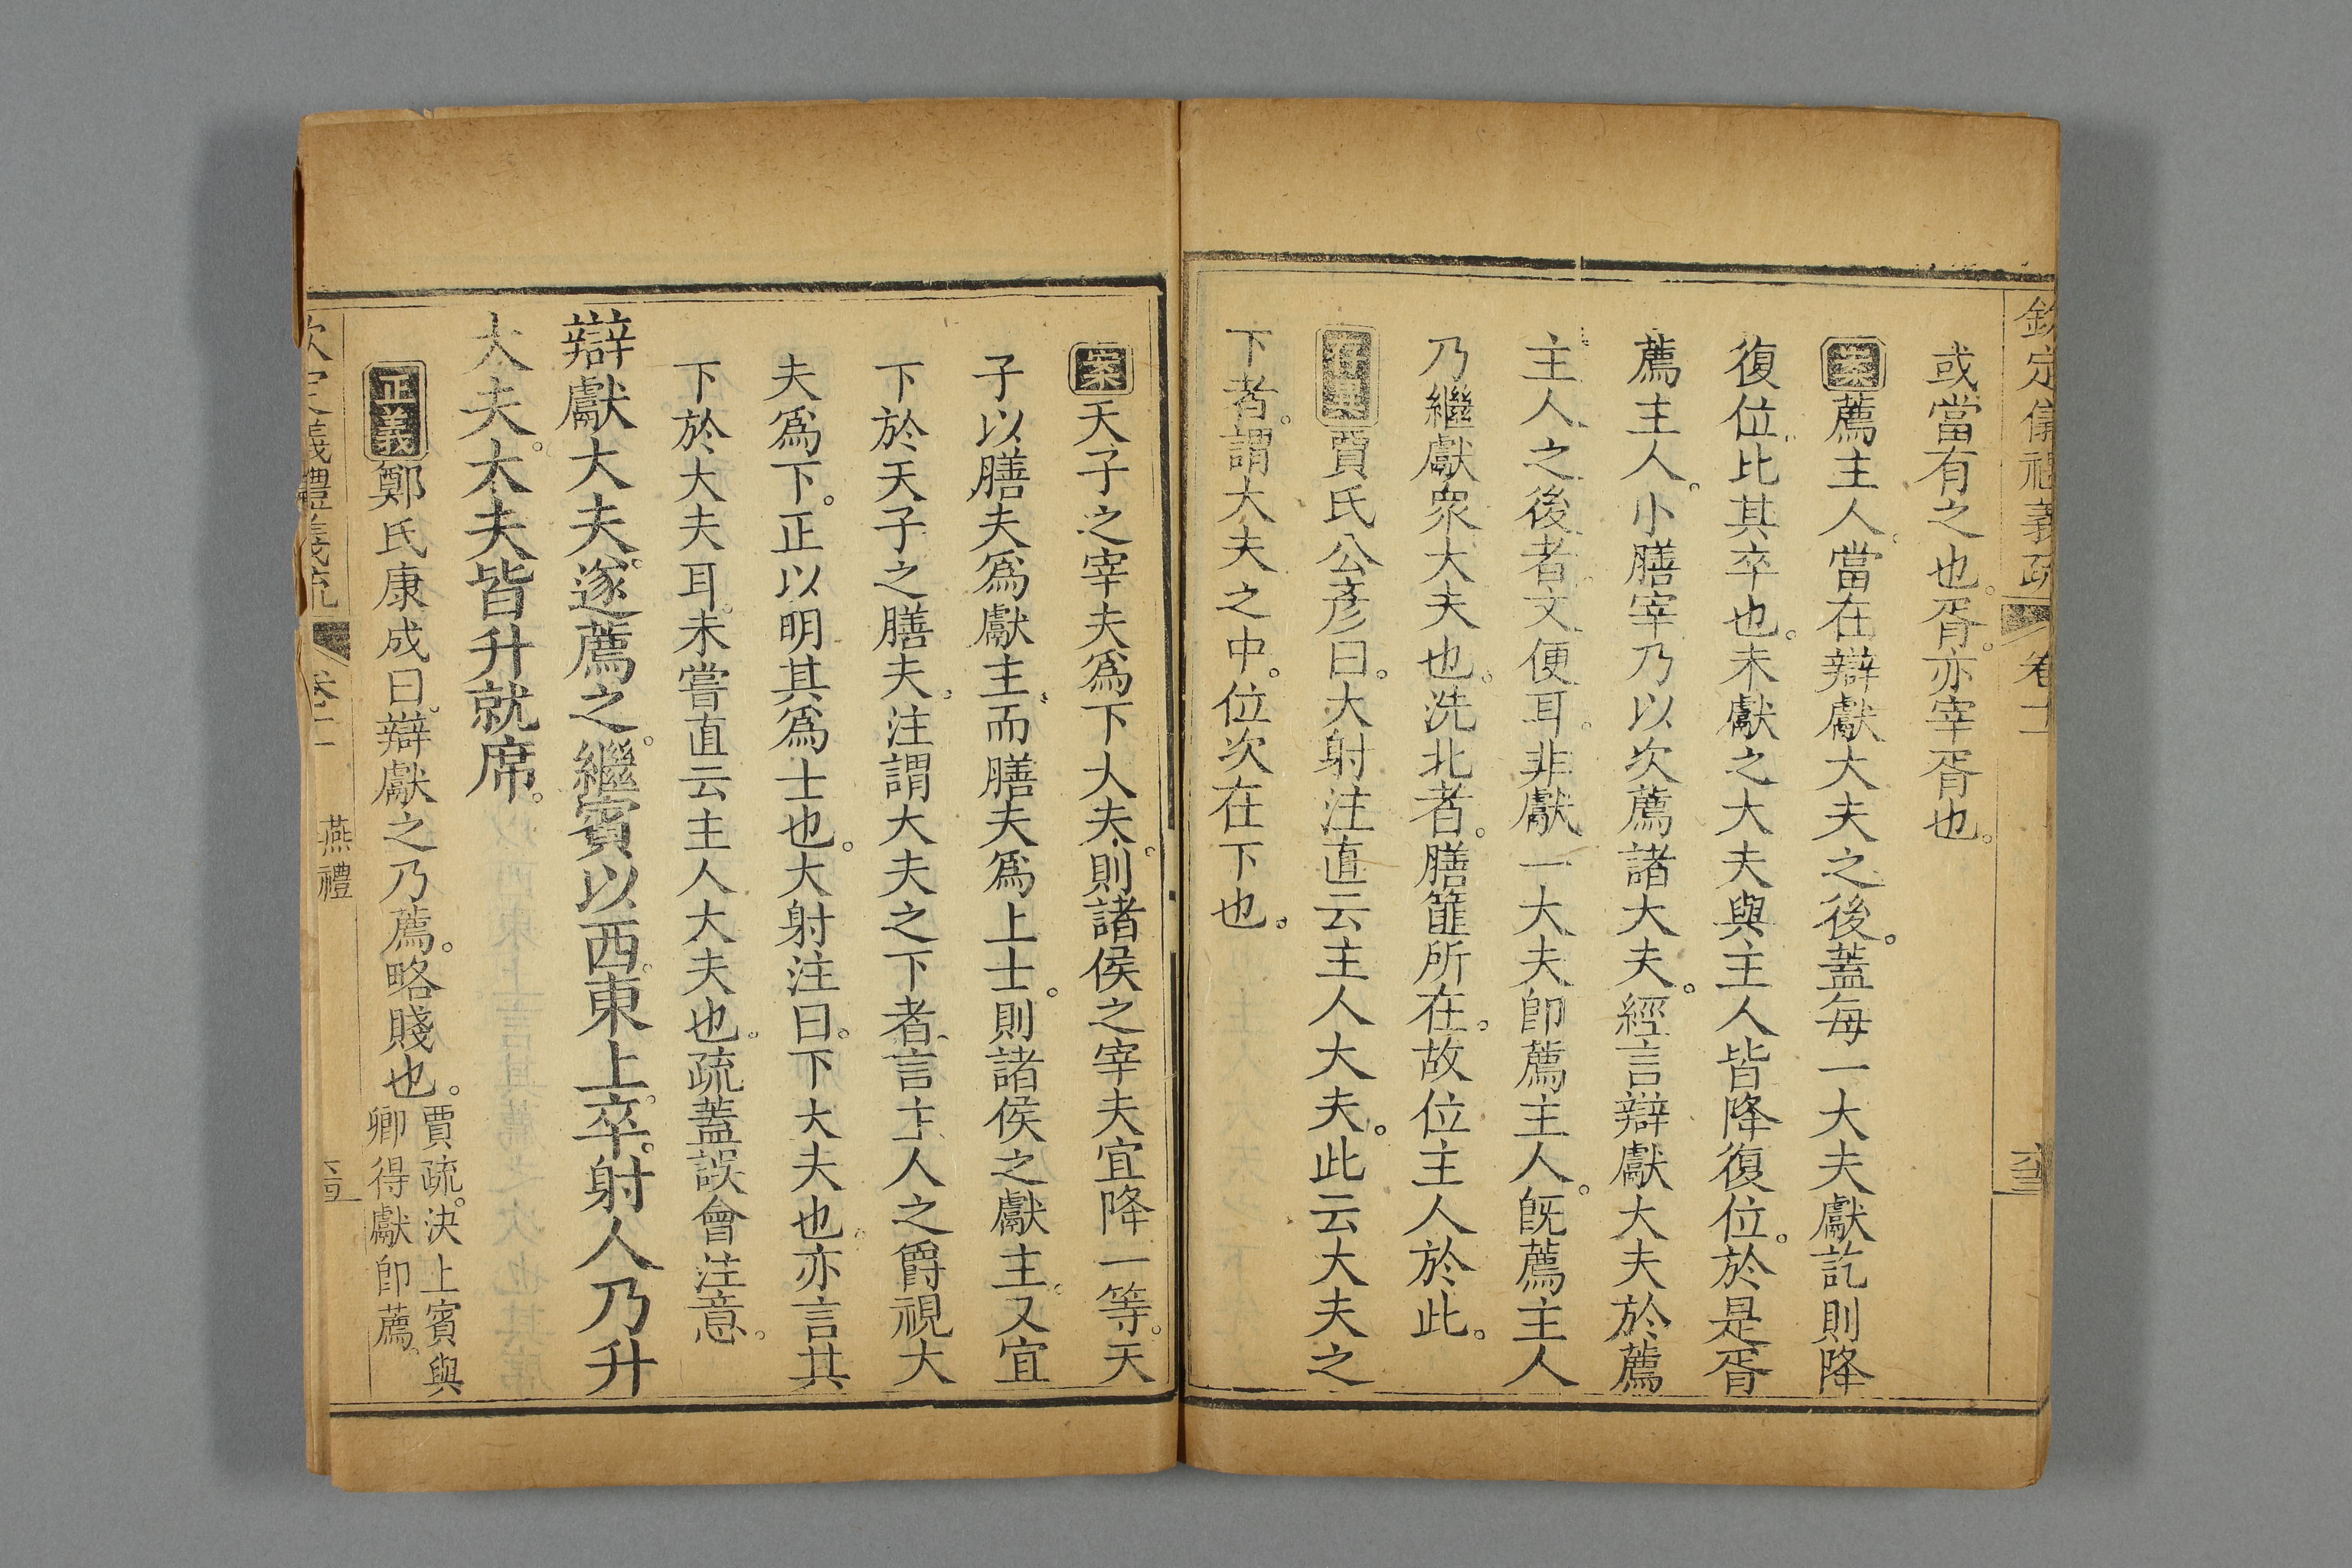 欽定儀禮義疏 卷十一
或當有之也。胥。亦宰胥也。
案薦主人。當在辯獻大夫之後。蓋每一大夫獻訖則降
復位。比其卒也。未獻之大夫與主人皆降復位。於是胥
薦主人。小膳宰乃以次薦諸大夫。經言辯獻大夫於薦
主人之後者。文便耳。非獻一大夫卽薦主人。旣薦主人
乃繼獻衆大夫也。洗北者。膳篚所在。故位主人於此。
賈氏公彥曰。大射注直云主人大夫。此云大夫之
下者。謂大夫之中。位次在下也。
案天子之宰夫爲下大夫。則諸侯之宰夫宜降一等。天
子以膳夫爲獻主。而膳夫爲上士。則諸侯之獻主。又宜
下於天子之膳夫。注謂大夫之下者。言主人之爵視大
夫爲下。正以明其爲士也。大射注曰。下大夫也。亦言其
下於大夫耳。未嘗直云主人大夫也。疏蓋誤會注意。
辯獻大夫。遂薦之。繼賓以西。東上。卒。射人乃升
大夫。大夫皆升就席。
正義鄭氏康成曰。辯獻之乃薦。略賤也。
賈疏。決上賓與
卿得獻卽薦。
義禮義疏 燕禮